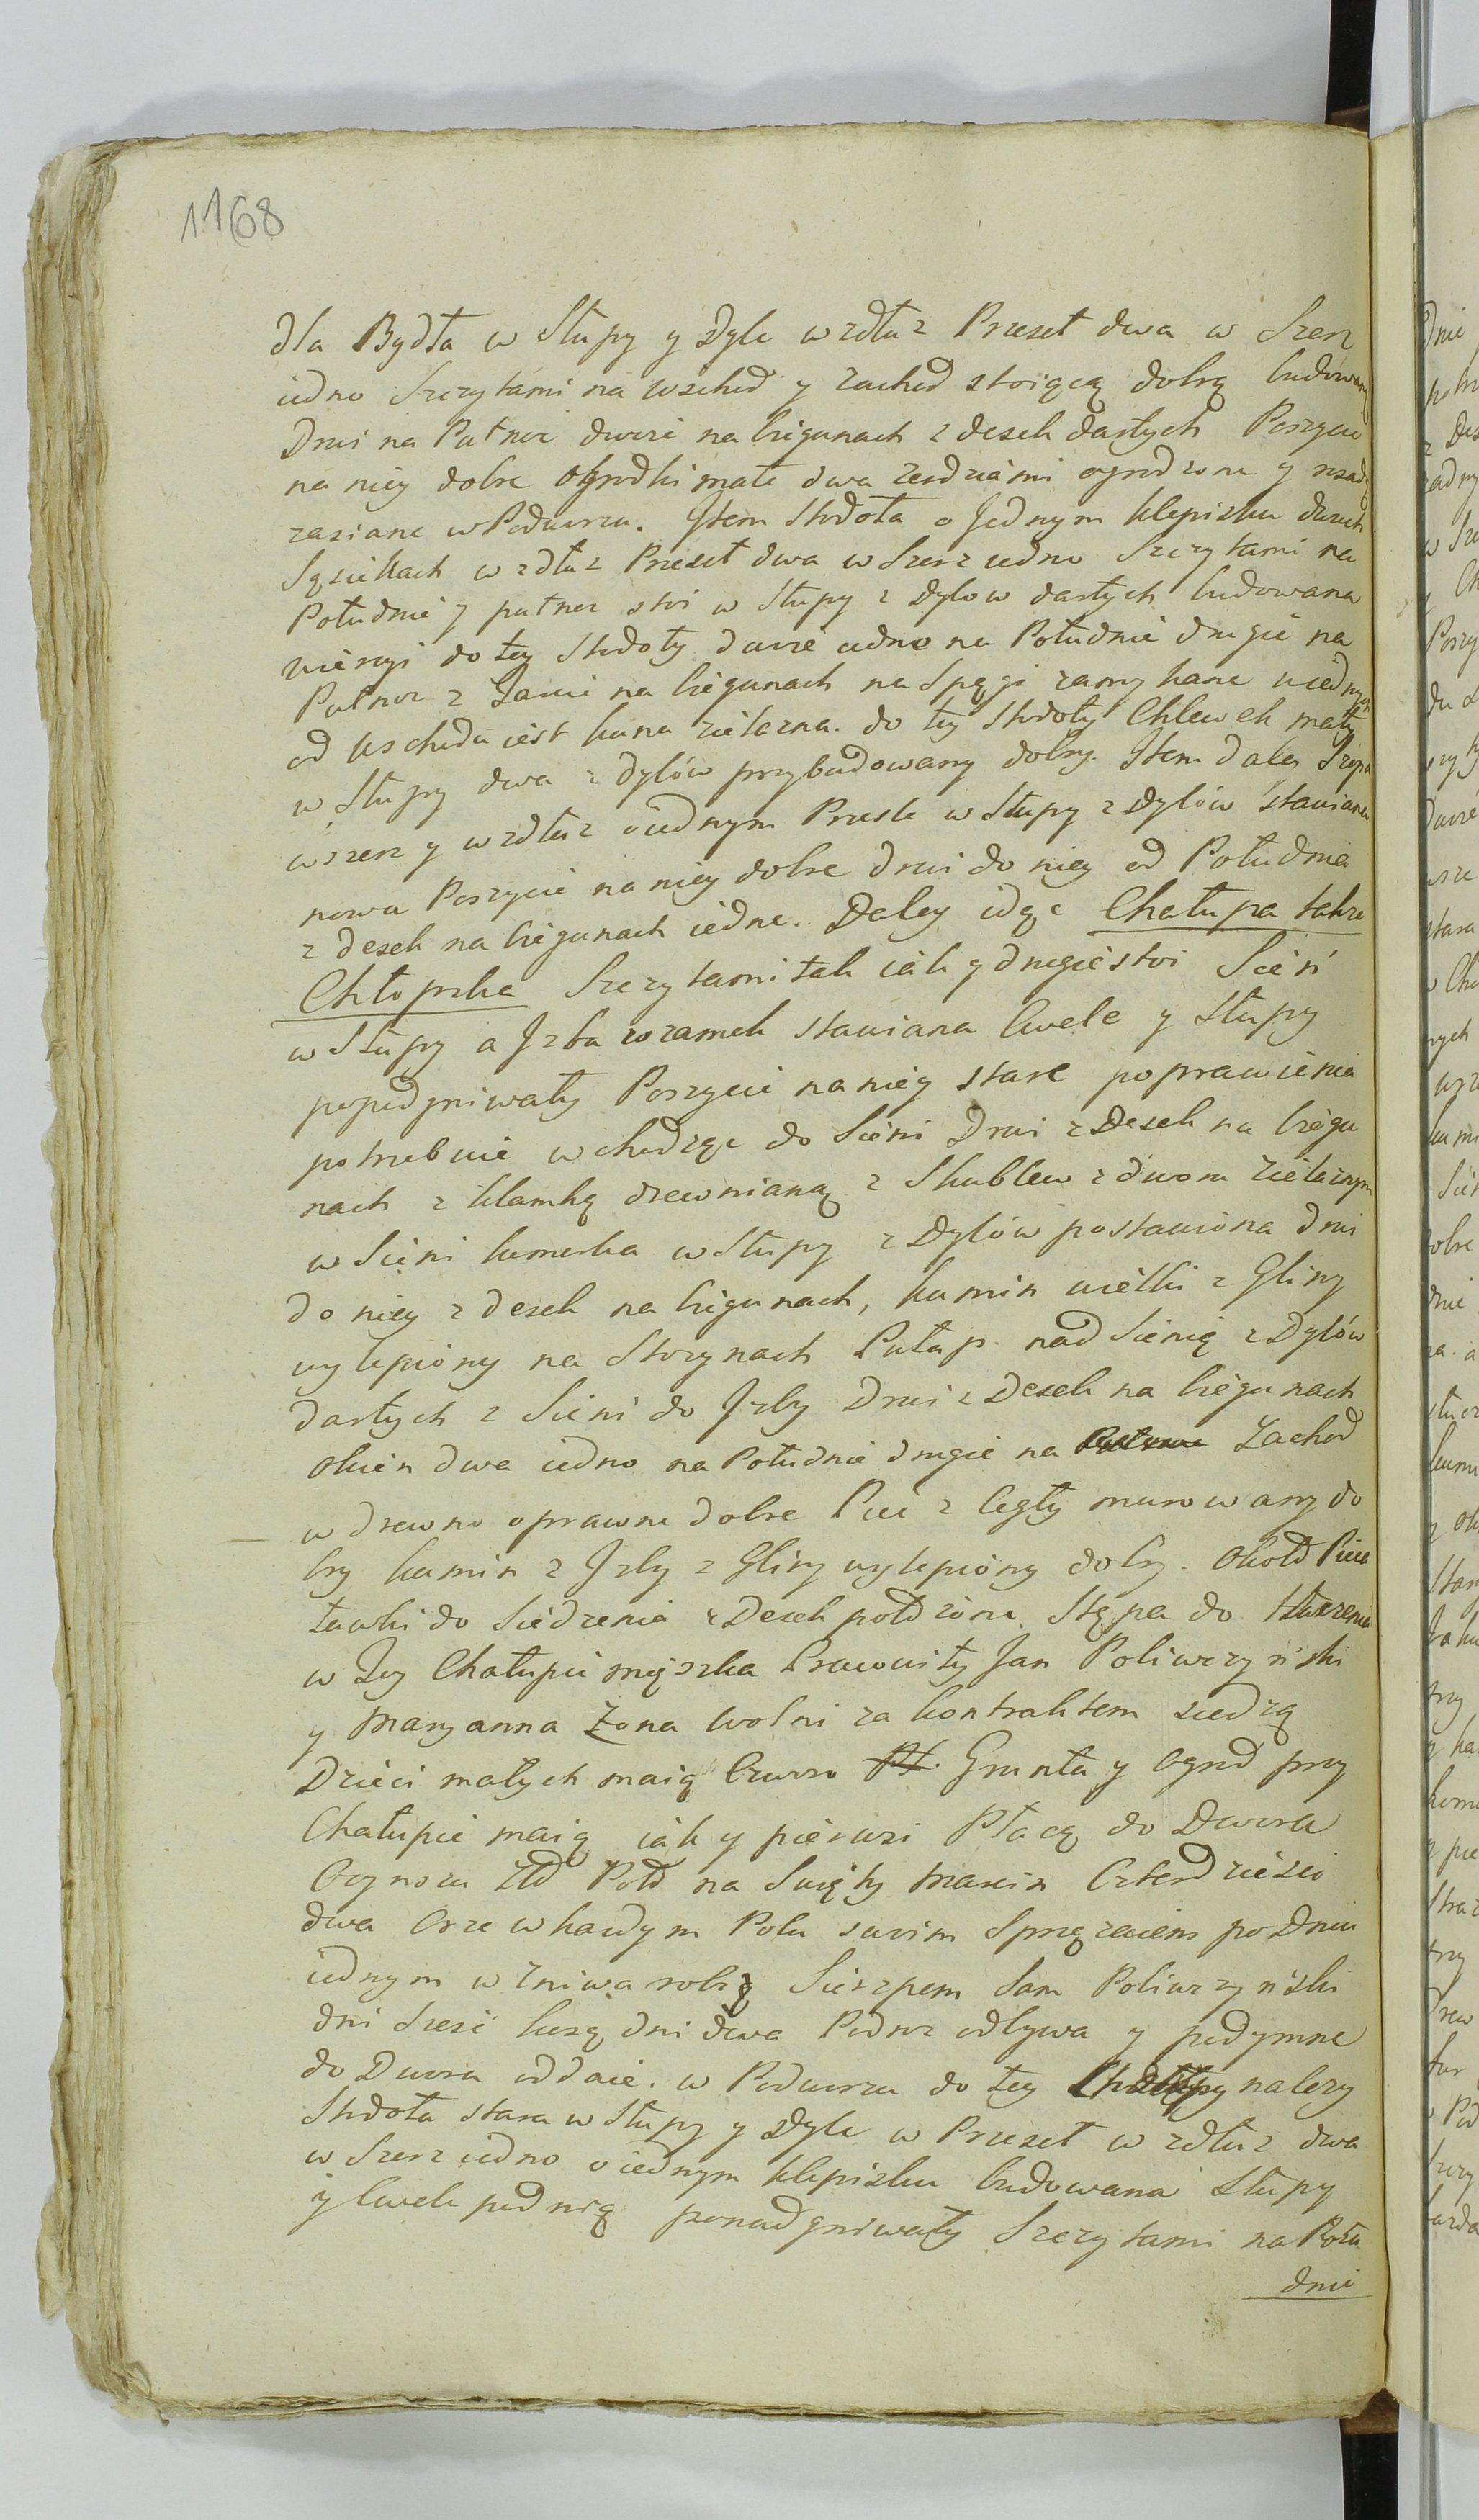 1168
dla Bydła w Słupy y Dyle wzdłuz Przeseł dwa w Szerz
iedno Szczytami na wschod y zachod stoiącą dobrą budowaną
Drzwi na Pułnoc dwoie na biegunach z desek dartych Poszycie
na niey dobre ogrodki małe dwa zerdziami ogrodzone y
zasiane w Podworzu. Item Stodoła o Jednym klepisku dwuch
Sąsiekach wzdłuz Przeseł dwa w Szerz iedno Szczytami na
Południe y pułnoc stoi w Słupy z Dylow dartych budowana
do tey Stodoły dwoie iedne na Południe drugie na
Pułnoc z Tarcic na biegunach na Spągi zamykane u iednych
od wschodu iest kuna zielazna. do tey Stodoły Chlewek mały
w Słupy dwa z dylów przybudowany dobry. Item daley Szopa
w szerz y wzdłuz o iednym Prześle w Słupy z Dylów stawiana
nowa Poszycie na niey dobre drzwi do niey od Południa
z desek na biegunach iedne. Daley idąc Chałupa takze
Chłopska Szczytami tak iak y drugie stoi Sień
w Słupy a Jzba w zamek stawiana Cwele y Słupy
popodgniwały Poszycie na niey stare poprawienia
potrzebuie wchodząc do Sieni Drzwi z Desek na biegu
nach z klamką drewnianą z Skoblem z dwom zielaznym
w Sieni komorka w Słupy z Dylów postawiona drzwi
do niey z desek na biegunach, komin wielki z Gliny
wylepiony na Storzynach Pułap nad Sienią z Dylów
dartych z Sieni do Jzby Drzwi z Desek na biegunach
okien dwa iedno na Południe drugie na Zachod
w drewno oprawne dobre Piec z Cegły murowany do
bry komin z Jzby z Gliny wylepiony dobry. około Pieca
ławki do Siedzenia z Desek połozone Stąpa do tłuczenia
w Tey Chałupie miészka Pracowity Jan Poliwczyński
y Maryanna Zona wolni za kontraktem siedzą
Dzieci małych maią Czworo Grunta y ogrod przy
Chałupie maią iak y piérwsi Płacą do Dwora
Czynszu Złł Poll na Swięty Marcin Czterdzieści
dwa Orze w kazdym Polu swoim Sprzęzaiem po Dniu
iednym w zniwa robią Sierzpem Sam Poliwczyński
dni Sześć koszą dni dwa Podroz odbywa y podymne
do Dwora oddaie. w Podworzu do tey Chałupy nalezy
Stodoła stara w Słupy y Dyle w Przeseł wzdłuz dwa
w Szerz iedno o iednym klepisku budowana Słupy
y Cwele pod nią ponadgniwały Szczytami na Połu
dnie